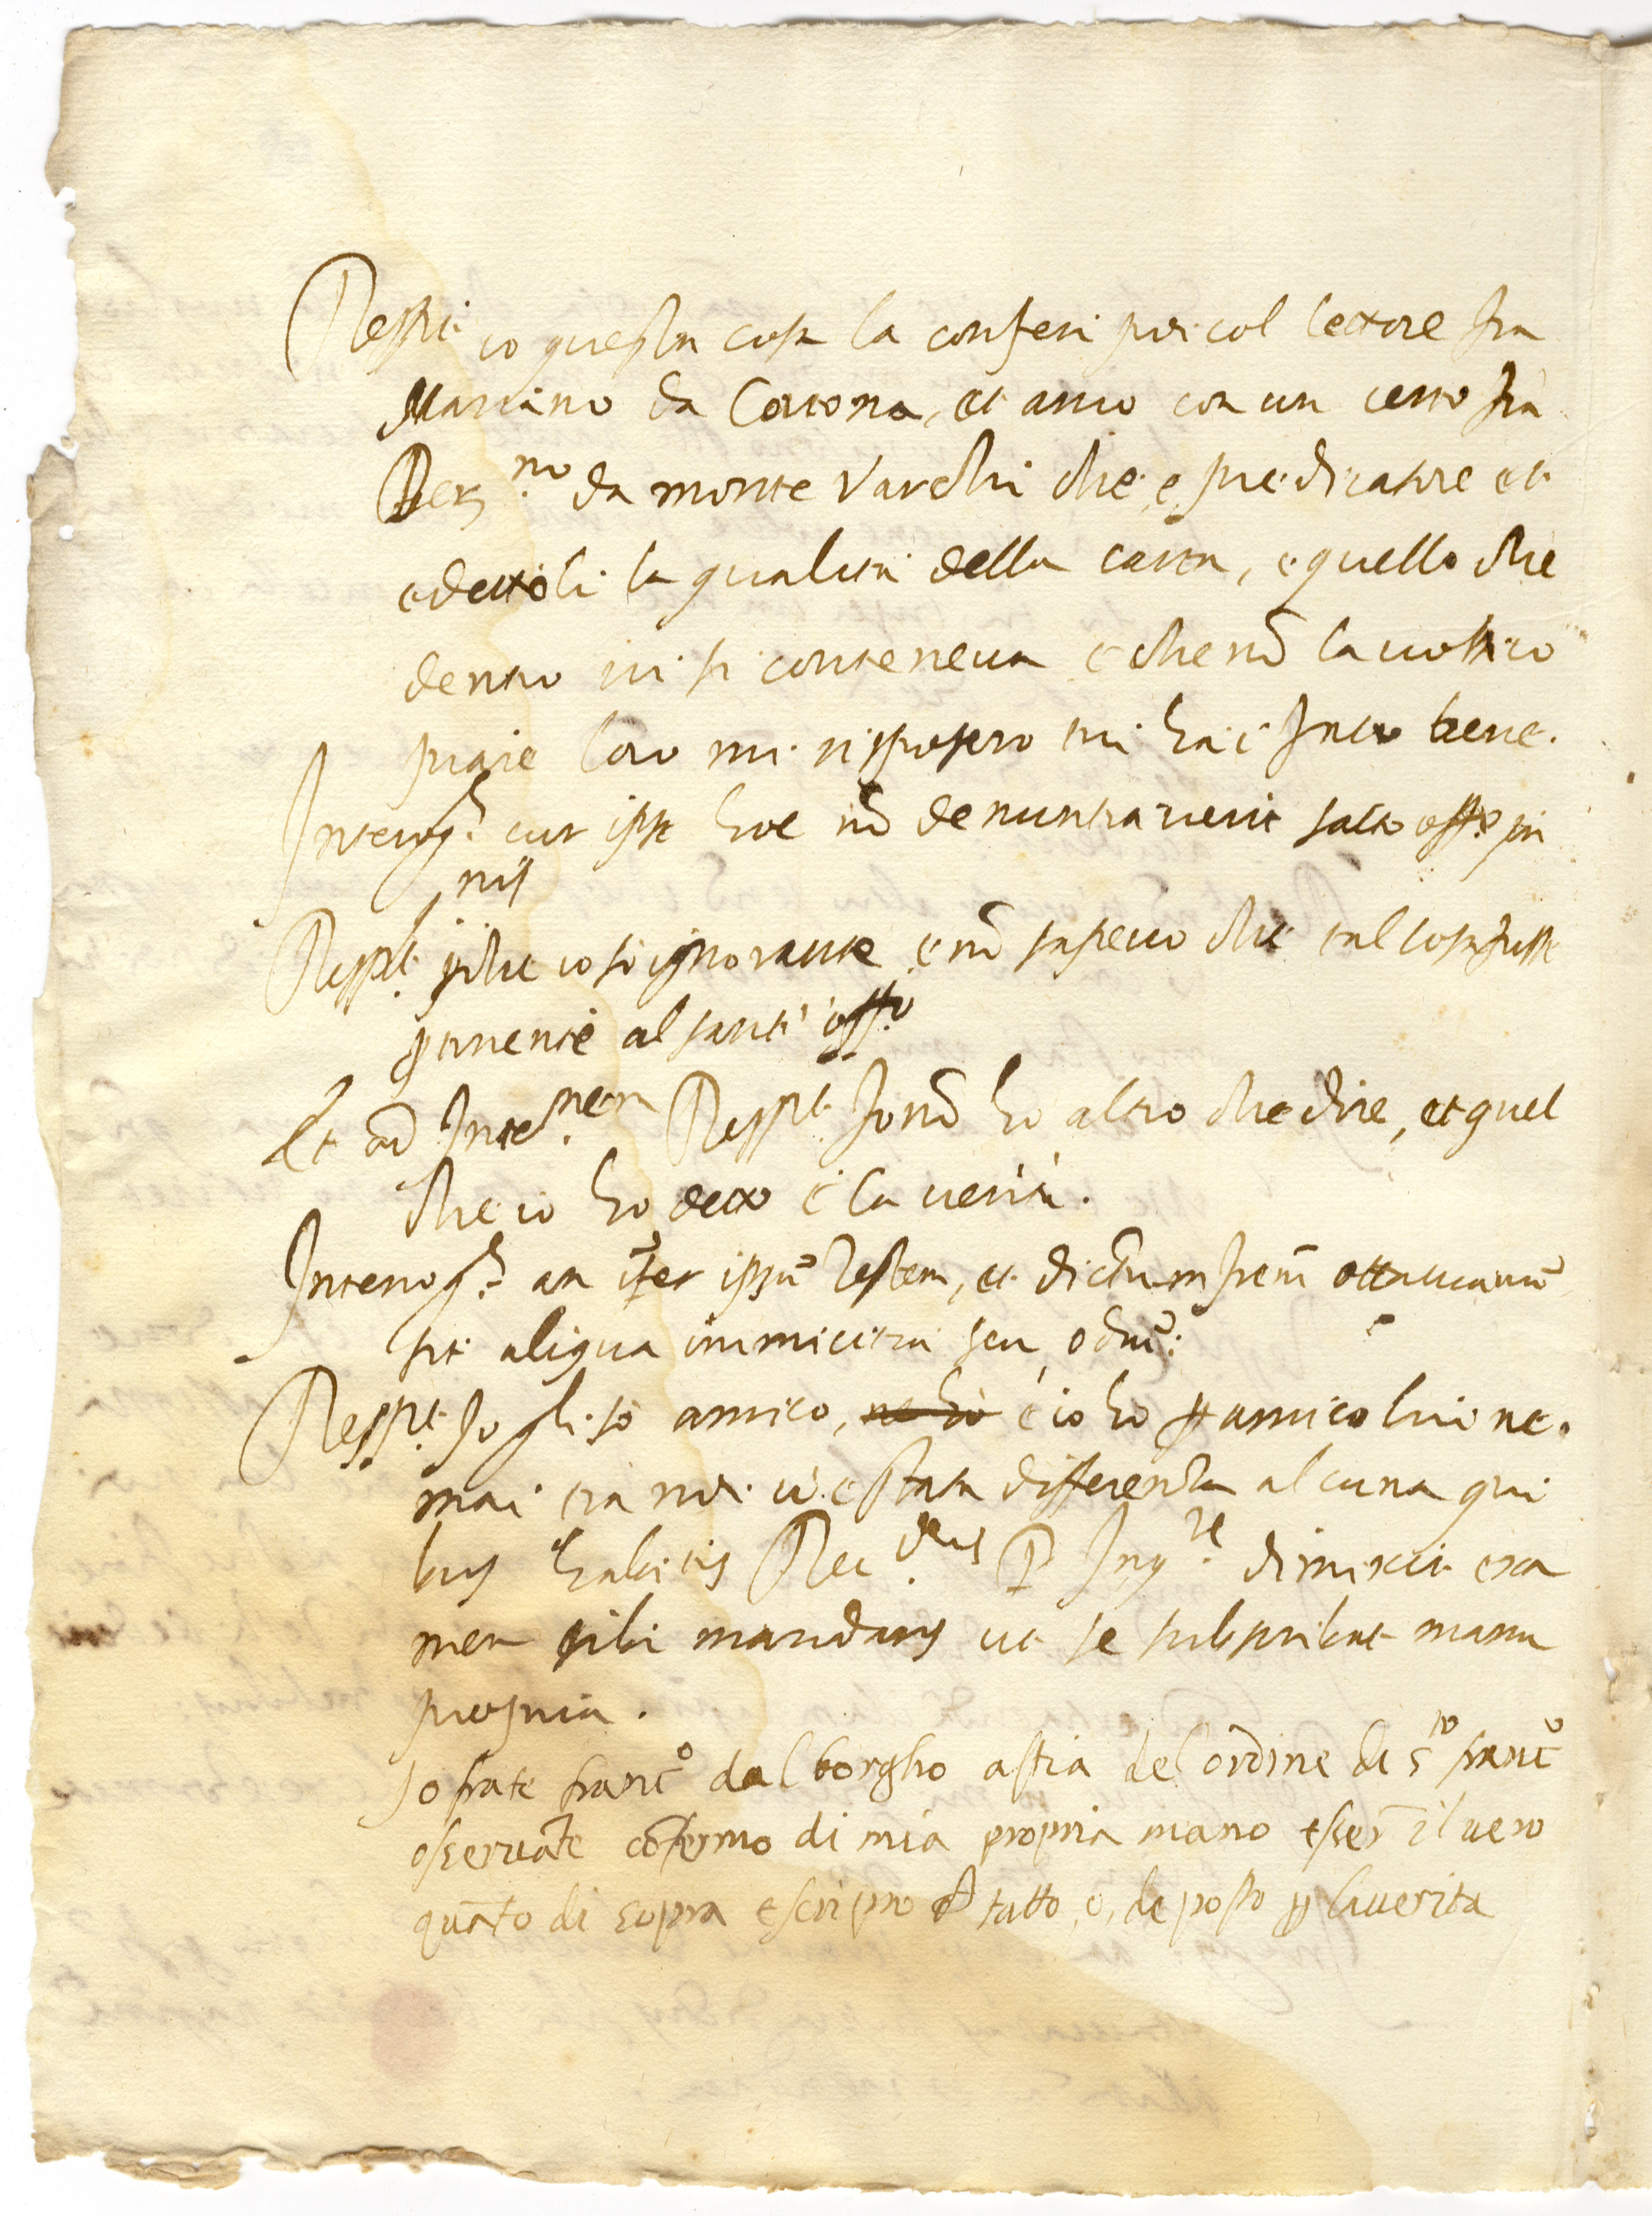 Resp.t io questa cosa la conferi poi col lettore fra
Martino da Cortona, et anco con un certo frà
Ber.no da monte Varchi che è predicatore et
e dettoli la qualità della carta, e quello che
dentro vi si conteneva e che nō la
loro mi risposero tu hai fatto bene.
Interog.s cur ipse hoc nō denuntiaverit sancto offo in
nis
Resp.t p̱che io so ignorante e nō sapevo che tal cosa fusse
p̱tinente al sant' offo
Et ad Inte.nem Resp.t Io nō ho altro che dire, et quel
che io ho detto è la verità.
Interrog.s an īter ipsū Testem, et dictum frem̄ ottavianū
sit aliqua inimicitia seu odiū:
Resp.t Io gli sò amico, ne ho e io ho p̱ amico lui ne
mai tra noi vi è stata differentia alcuna qui
bus habitis Rev.dus P. Inq.re dimisit exa
men sibi mandans ut se subscribat manu
propria.
Io frate franc̄o dal borgho a del ordine di s.to franc̄o
osservāte cōfermo di mia propria mano esser il vero
quāto di sopra e scripto & tutto o, deposto p̱ la verita